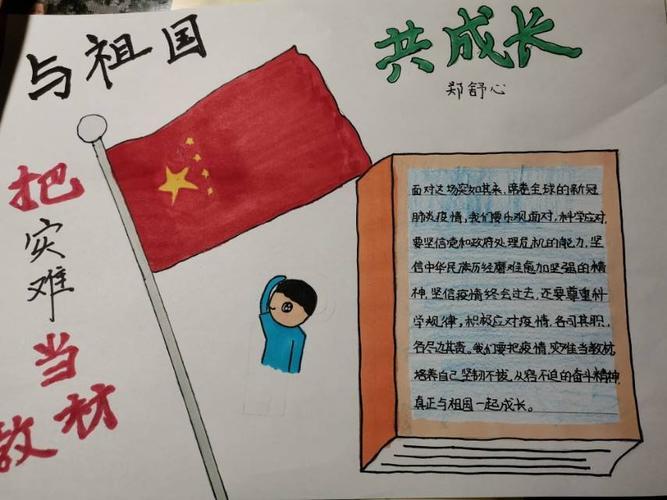 与祖国
共成长
郑舒心
把
灾
难
当
教材
面对这场突如其来,席卷全球的新冠
肺炎疫情,我们要乐观面对,科学应对
要坚信党和政府处理危机的能力,坚
信中华民族历经磨难愈加坚强的精
神,坚信疫情终会过去,还要尊重科
学规律,积极应对疫情,各司其职,
各尽其责。我们要把疫情,灾难当教材,
培养自己坚韧不拔,从容不迫的奋斗精神,
真正与祖国一起成长。